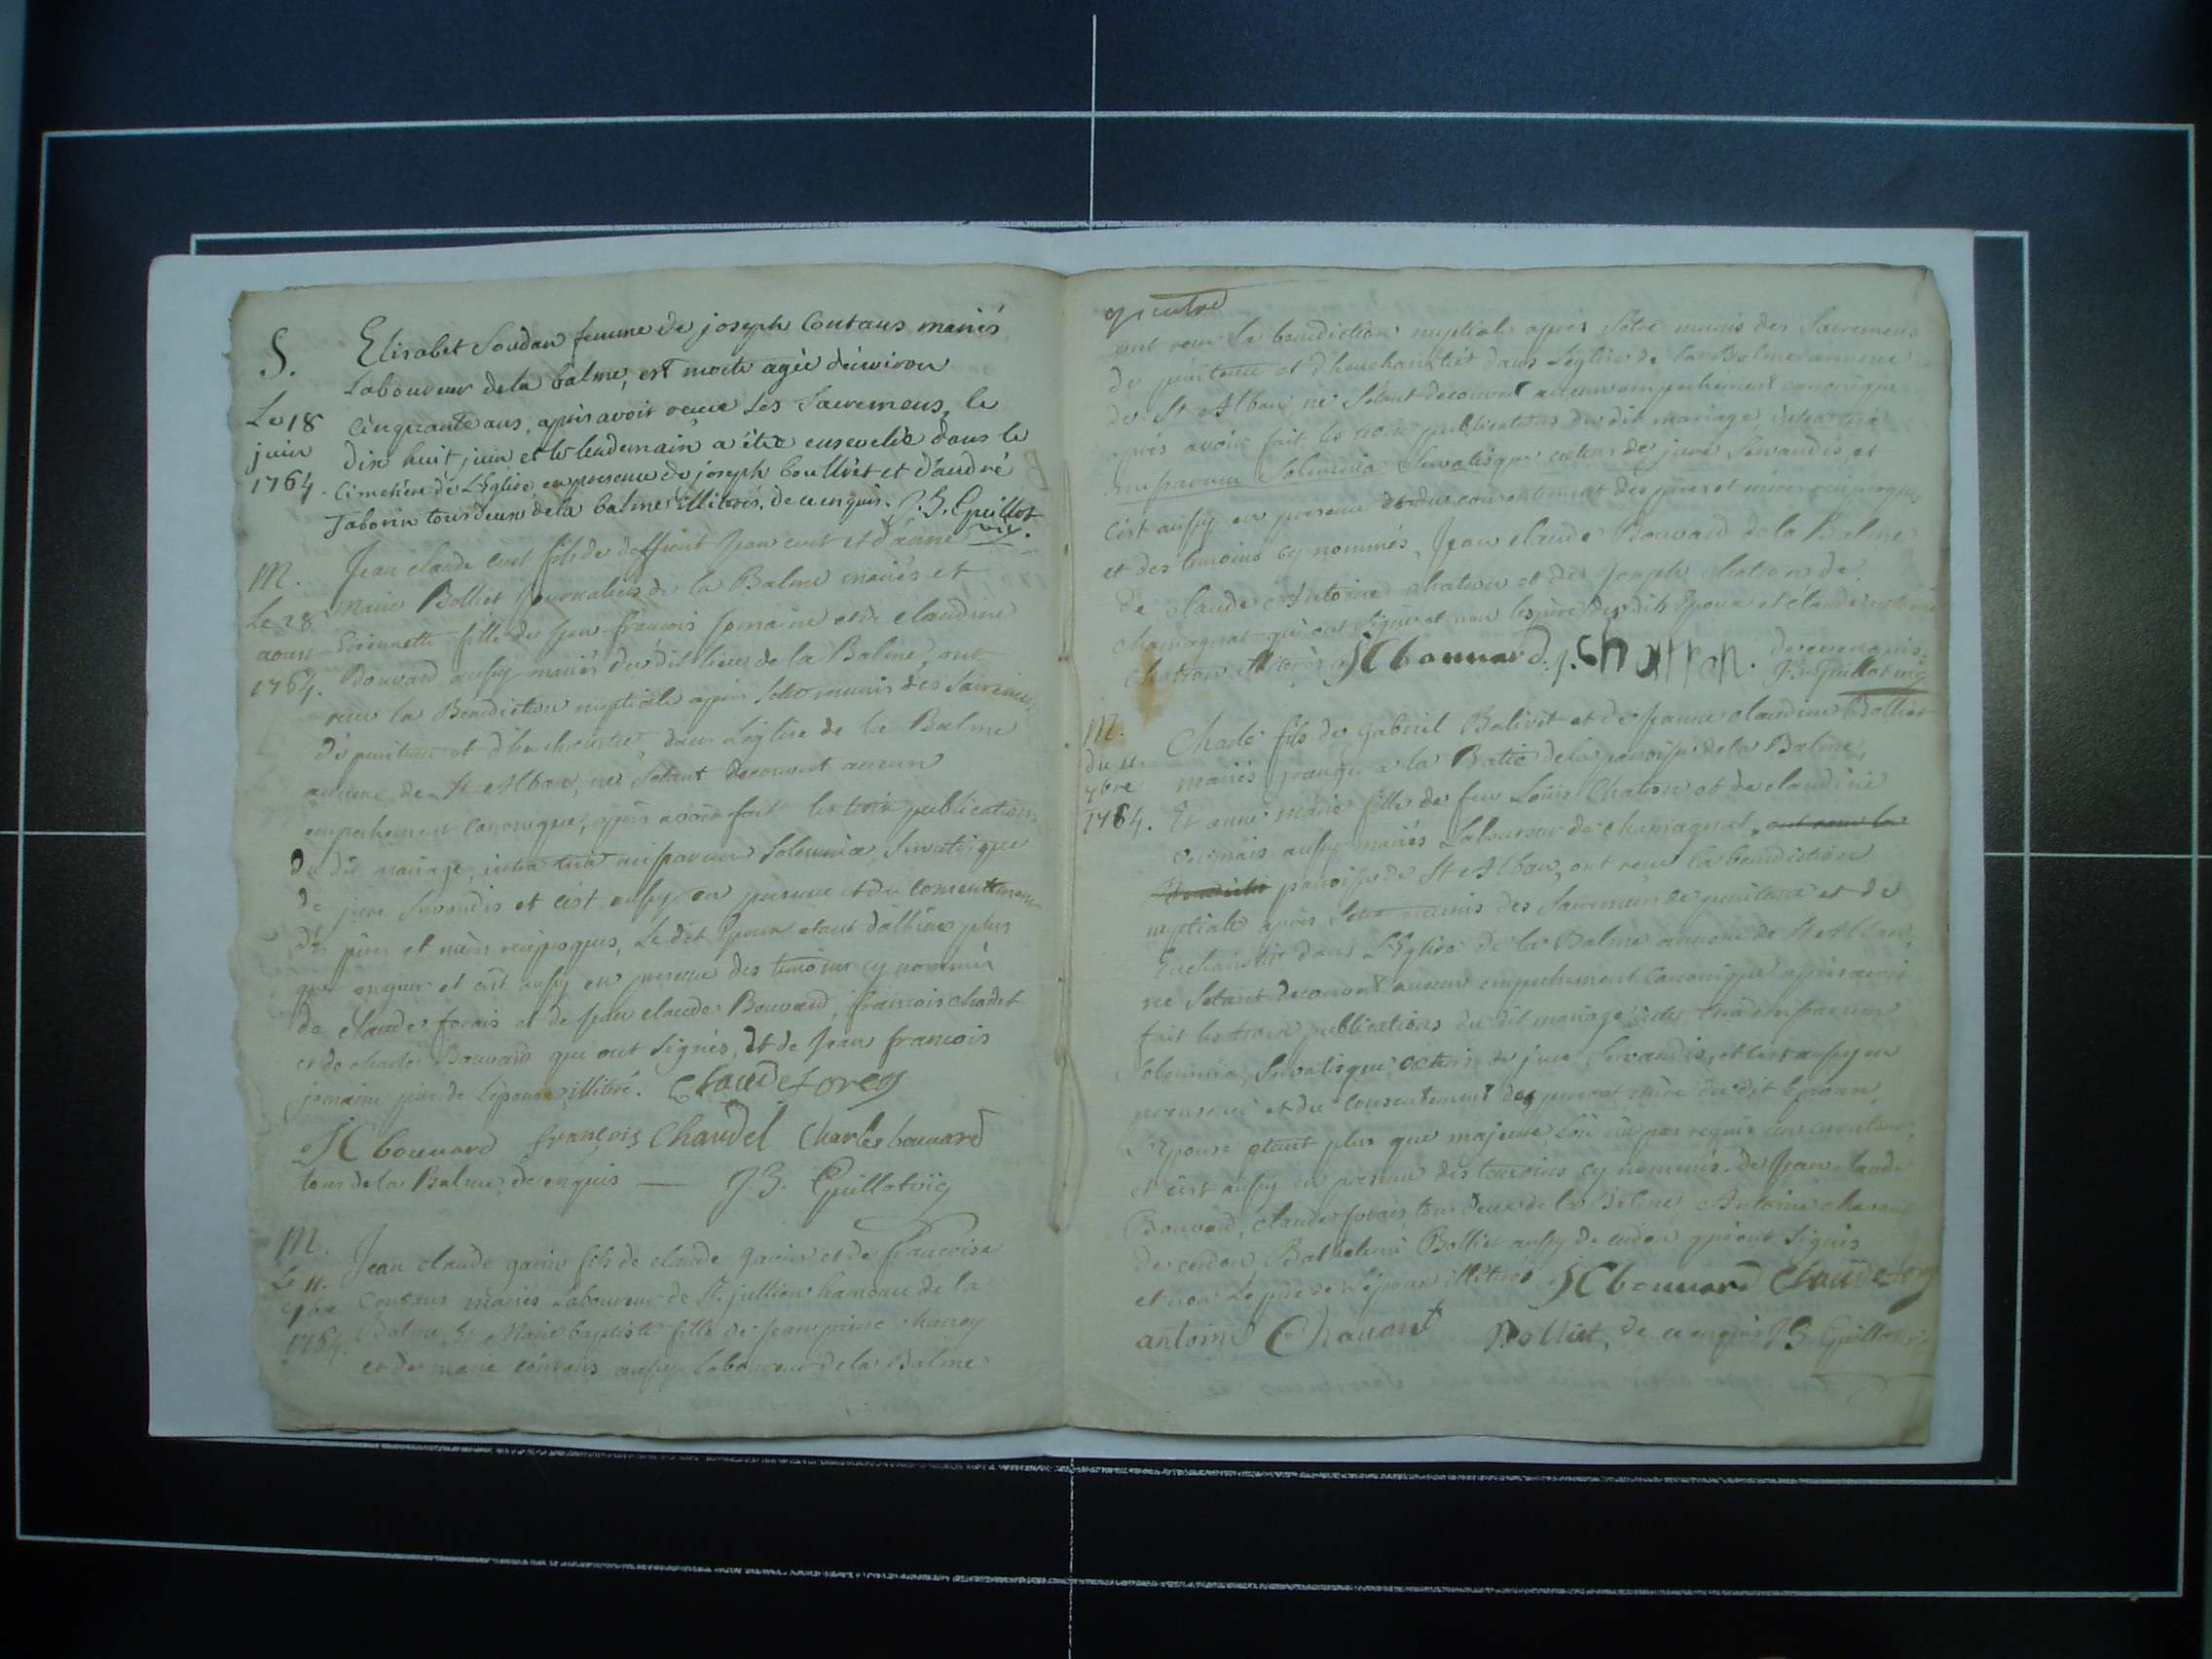 S.
Elisabet Soudan femme de joseph Coutaus mariés
Laboureur dela balme, est morte agée d'environ
Le 18
cinquante ans, après avoir reçue les Sacremens, le
juin
dix huit juin et le lendemain a étée ensevelie dans le
1764.
Cimetiere de L'Eglise en presence de joseph boullvet et d'andré
Taborin tous deux dela balme illitérés, de ce enquis. J. B. Guillot
vic.
M.
Jean claude cuet fils de deffunt Jean cuet et d'anne
Le 28
Marie Bolliet journaliers de la Balme mariés et
aoust
Etiennette fille de Jean-francois jomain et de claudine
1764.
Bouvard aussy mariés du dit lieu de la Balme, ont
reçu la Benediction nuptiale après S'etre munis des Sacremens
de penitence et d'heucharistie, dans L'église de la Balme
annexe de St Alban, ne S'etant decouvert aucun
empechement canonique, après avoir fait les trois publications
du dit mariage, intra missarum Solemnia, Servatisque
de jure Servandis et c'est aussy en presence et du consentement
des peres et mères reciproques, Le dit Epoux etant d'allieurs plus
que majeur et c'est aussy en presence des temoins cy nommés
de claude forais et de Jean claude Bouvard, francois chadet
et de charle Bouvard qui ont Signés, et de Jean francois
jomain père de L'epouse illitéré. Claude forey
JC bouvard françois Chaudel Charles bouvard
tous de la Balme, de ce enquis — J. B. Guillot vic
M.
Jean claude garin fils de claude garin et de francoise
Le 11.
Coutaus mariés Laboureur de St. jullien hameau de la
9bre
Balme, Et Marie baptiste fille de Jean pierre charey
1764.
et de marie coutaus aussy laboureur dela Balme
quatre
ont reçu la benediction nuptiale après S'etre munis des Sacremens
de penitence et d'heucharistie dans L'église de la Balme annexe
de St Alban, ne S'etant decouvert aucun empechement canonique
après avoir fait les trois publications du dit mariage, intra
missarum Solemnia Servatisque ceteris de jure Servandis, et
c'est aussy en presence et du consentement des peres et mères reciproques
et des temoins cy nommés, Jean claude Bouvard dela Balme
de claude Antoine chatron et de joseph chatron de
chamagnat qui ont Signé et non les pères des dits Epoux et claude antoine
chatron illitérés JC bouuard. j. Chattron. de ce enquis.
J. B. Guillot vic
M.
Charle fils de gabriel Balivet et de Jeanne claudine Bolliet
du 11.
mariés granger a la Batie dela paroisse dela Balme,
9bre
1764.
Et anne marie fille de feu Louis Chatron et de claudine
aussy mariés Laboureur de chamagnat, ont reçu la
Benedictio paroisse de St Alban, ont reçu la benediction
nuptiale après S'etre munis des Sacremens de penitence et de
Eucharistie dans L'Eglise de la Balme annexe de St Alban,
ne S'etant decouvert aucun empechement canonique après avoir
fait les trois publications du dit mariage inter missarum
Solemnia, Servatisque ceteris de jure Servandis, et c'est aussy en
presence et du consentement des pere et mère du dit Epoux,
L'Epouse etant plus que majeure L'on n'a pas requis un curateur,
et c'est aussy en presence des temoins cy nommés de Jean claude
Bouvard, claude forais, tous deux de la Balme Antoine chavent
de cerdon Bathelemi Bolliet aussy de cerdon qui ont Signés
et non Le père de L'epoux illitéré JC bouuard Claude forey
antoine Chauant Bolliet, de ce enquis J. B. Guillot vic